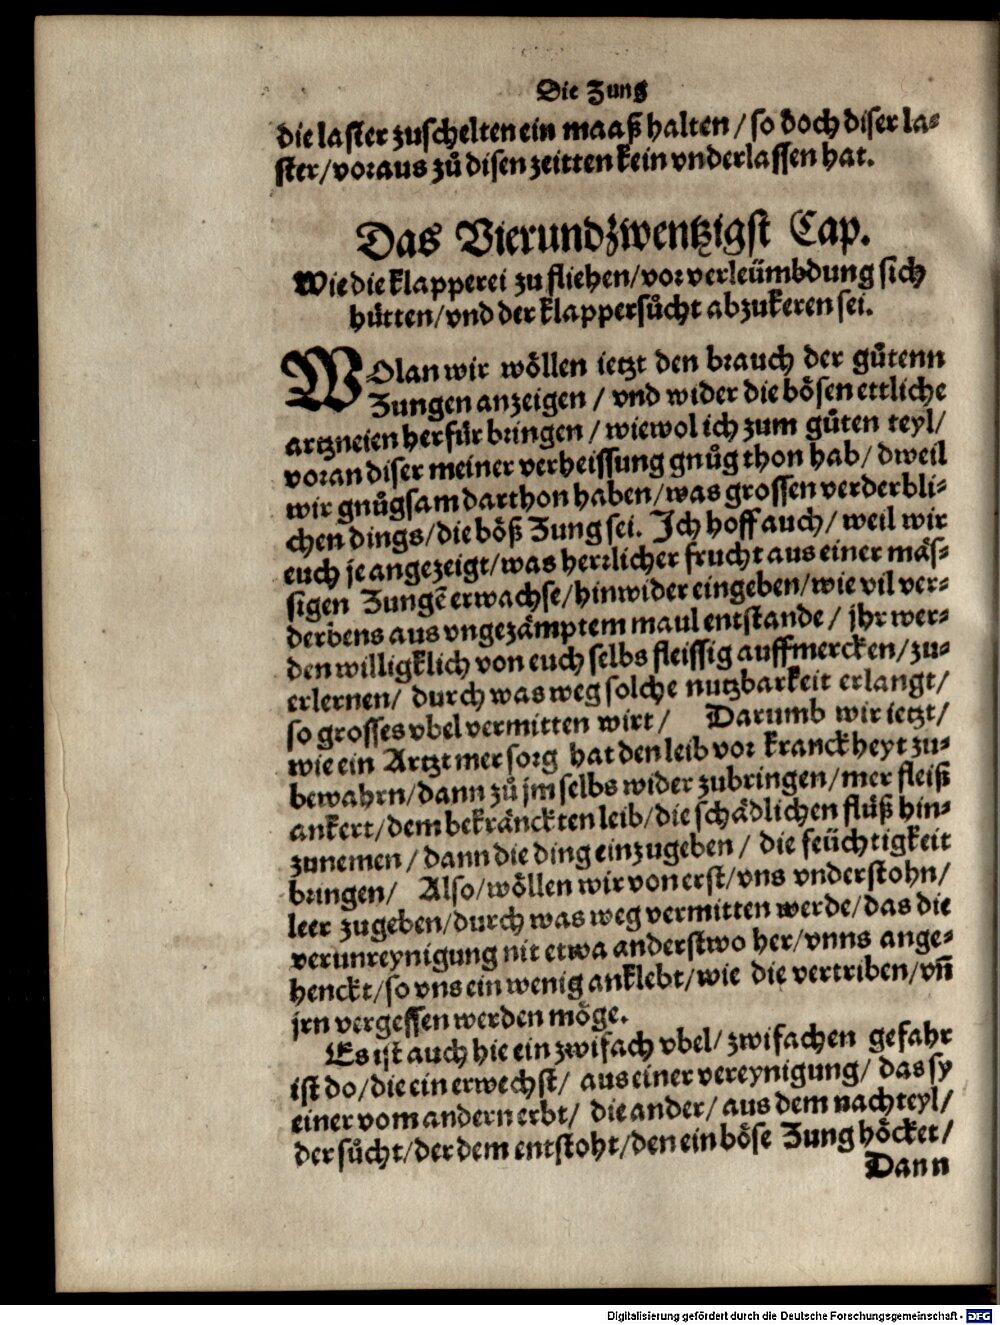 Die Zung
die laster zuschelten ein maaß halten / so doch diser la⸗
ster/voraus zů disen zeitten kein vnderlassen hat.
Das Vierundzwentzigst Cap.
Wie die klapperei zu fliehen/vor verleümbdung sich
hůtten/vnd der klappersůcht abzukeren sei.
WOlan wir wöllen ietzt den brauch der gůtenn
Zungen anzeigen / vnd wider die bösen ettliche
artzneien herfür bringen / wiewol ich zum gůten teyl/
voran diser meiner verheissung gnůg thon hab/ dweil
wir gnůgsam darthon haben/was grossen verderbli⸗
chen dings/die böß Zung sei. Ich hoff auch/ weil wir
euch je angezeigt/was herrlicher frucht aus einer mäs⸗
sigen Zungē erwachse/hinwider eingeben/wie vil ver⸗
derbens aus vngezämptem maul entstande / jhr wer⸗
den willigklich von euch selbs fleissig auffmercken/zu⸗
erlernen/ durch was weg solche nutzbarkeit erlangt/
so grosses vbel vermitten wirt/ Darumb wir ietzt/
wie ein Artzt mer sorg hat den leib vor kranckheyt zu⸗
bewahrn/dann zů jm selbs wider zubringen/mer fleiß
ankert/dem bekränckten leib/die schädlichen flüß hin⸗
zunemen / dann die ding einzugeben / die feüchtigkeit
bringen/ Also/wöllen wir von erst/vns vnderstohn/
leer zugeben/durch was weg vermitten werde/das die
verunreynigung nit etwa anderstwo her/vnns ange⸗
henckt/so vns ein wenig anklebt/wie die vertriben/vñ
jrn vergessen werden möge.
Es ist auch hie ein zwifach vbel/ zwifachen gefahr
ist do/die ein erwechst/ aus einer vereynigung/ das sy
einer vom andern erbt/ die ander/ aus dem nachteyl/
der sůcht/der dem entstoht/den ein böse Zung höcket/
Dann
Digitalisierung gefördert durch die Deutsche Forschungsgemeinschaft - DFG